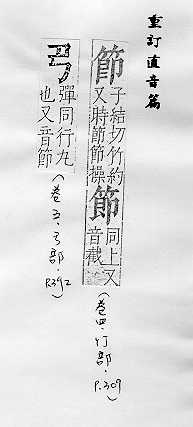 重訂直音篇
節
子結切竹約
又時節節操
節
同上又
音截
(卷四·竹部·P.309)
彈同行丸
也又音節
(卷五·弓部·P.392)